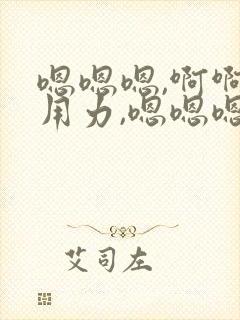 嗯嗯嗯,啊啊
用力,嗯嗯嗯
艾司左